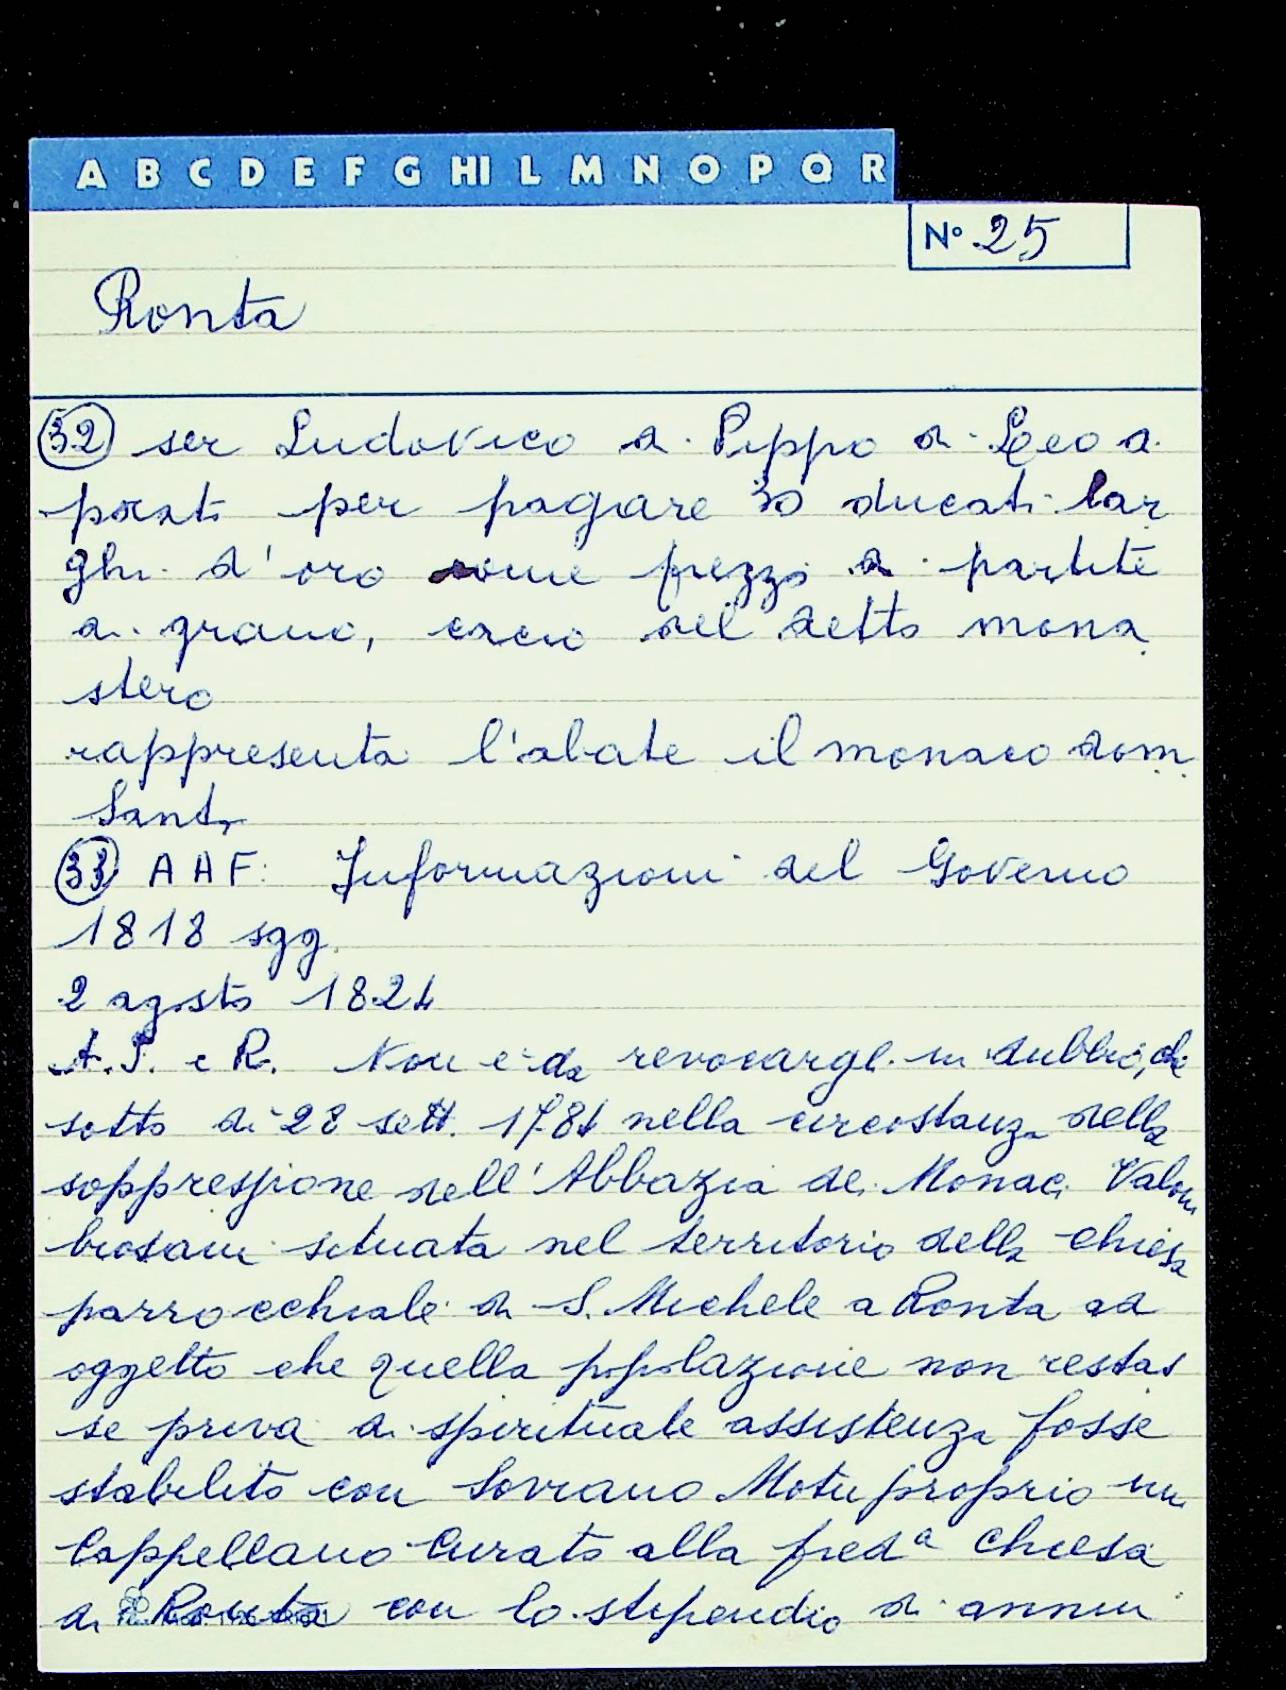 A B C D E F G HI L M N O P Q R
N° 25
Ronta
32 ser Ludovico di Pippo di Leo di
prati per pagare 30 ducati lar
ghi d'oro come prezzo di partite
di grano, cacio del detto mona
stero
rappresenta l'abate il monaco dom
Santi
33 A A F: Informazioni del Governo
1818 sgg.
2 agosto 1824
A. I. e R. Non è da revocargli in dubbio, che
sotto di 28 sett. 1784 nella circostanza della
soppressione dell'Abbazia dei Monaci Valom
brosani situata nel territorio della chiesa
parrocchiale di S. Michele a Ronta ad
oggetto che quella popolazione non restas
se priva di spirituale assistenza fosse
stabilito con Sovrano Motu proprio un
Cappellano Curato alla pred.a Chiesa
di Ronta con lo stipendio di annui